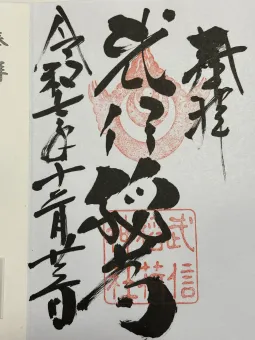 奉拝
武信稲荷
令和七年十二月廿三日
武信
稲荷
神社
奉拝